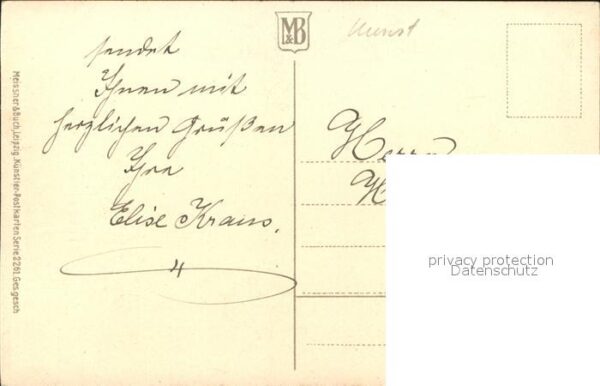 M&B
Kunst
sendet
Ihnen mit
herzlichen Grüßen
Ihre
Elise Kraus.
Herrn
Meissner & Buch, Leipzig. Künstler-Postkarten Serie 2261. Ges. gesch
privacy protection
Datenschutz